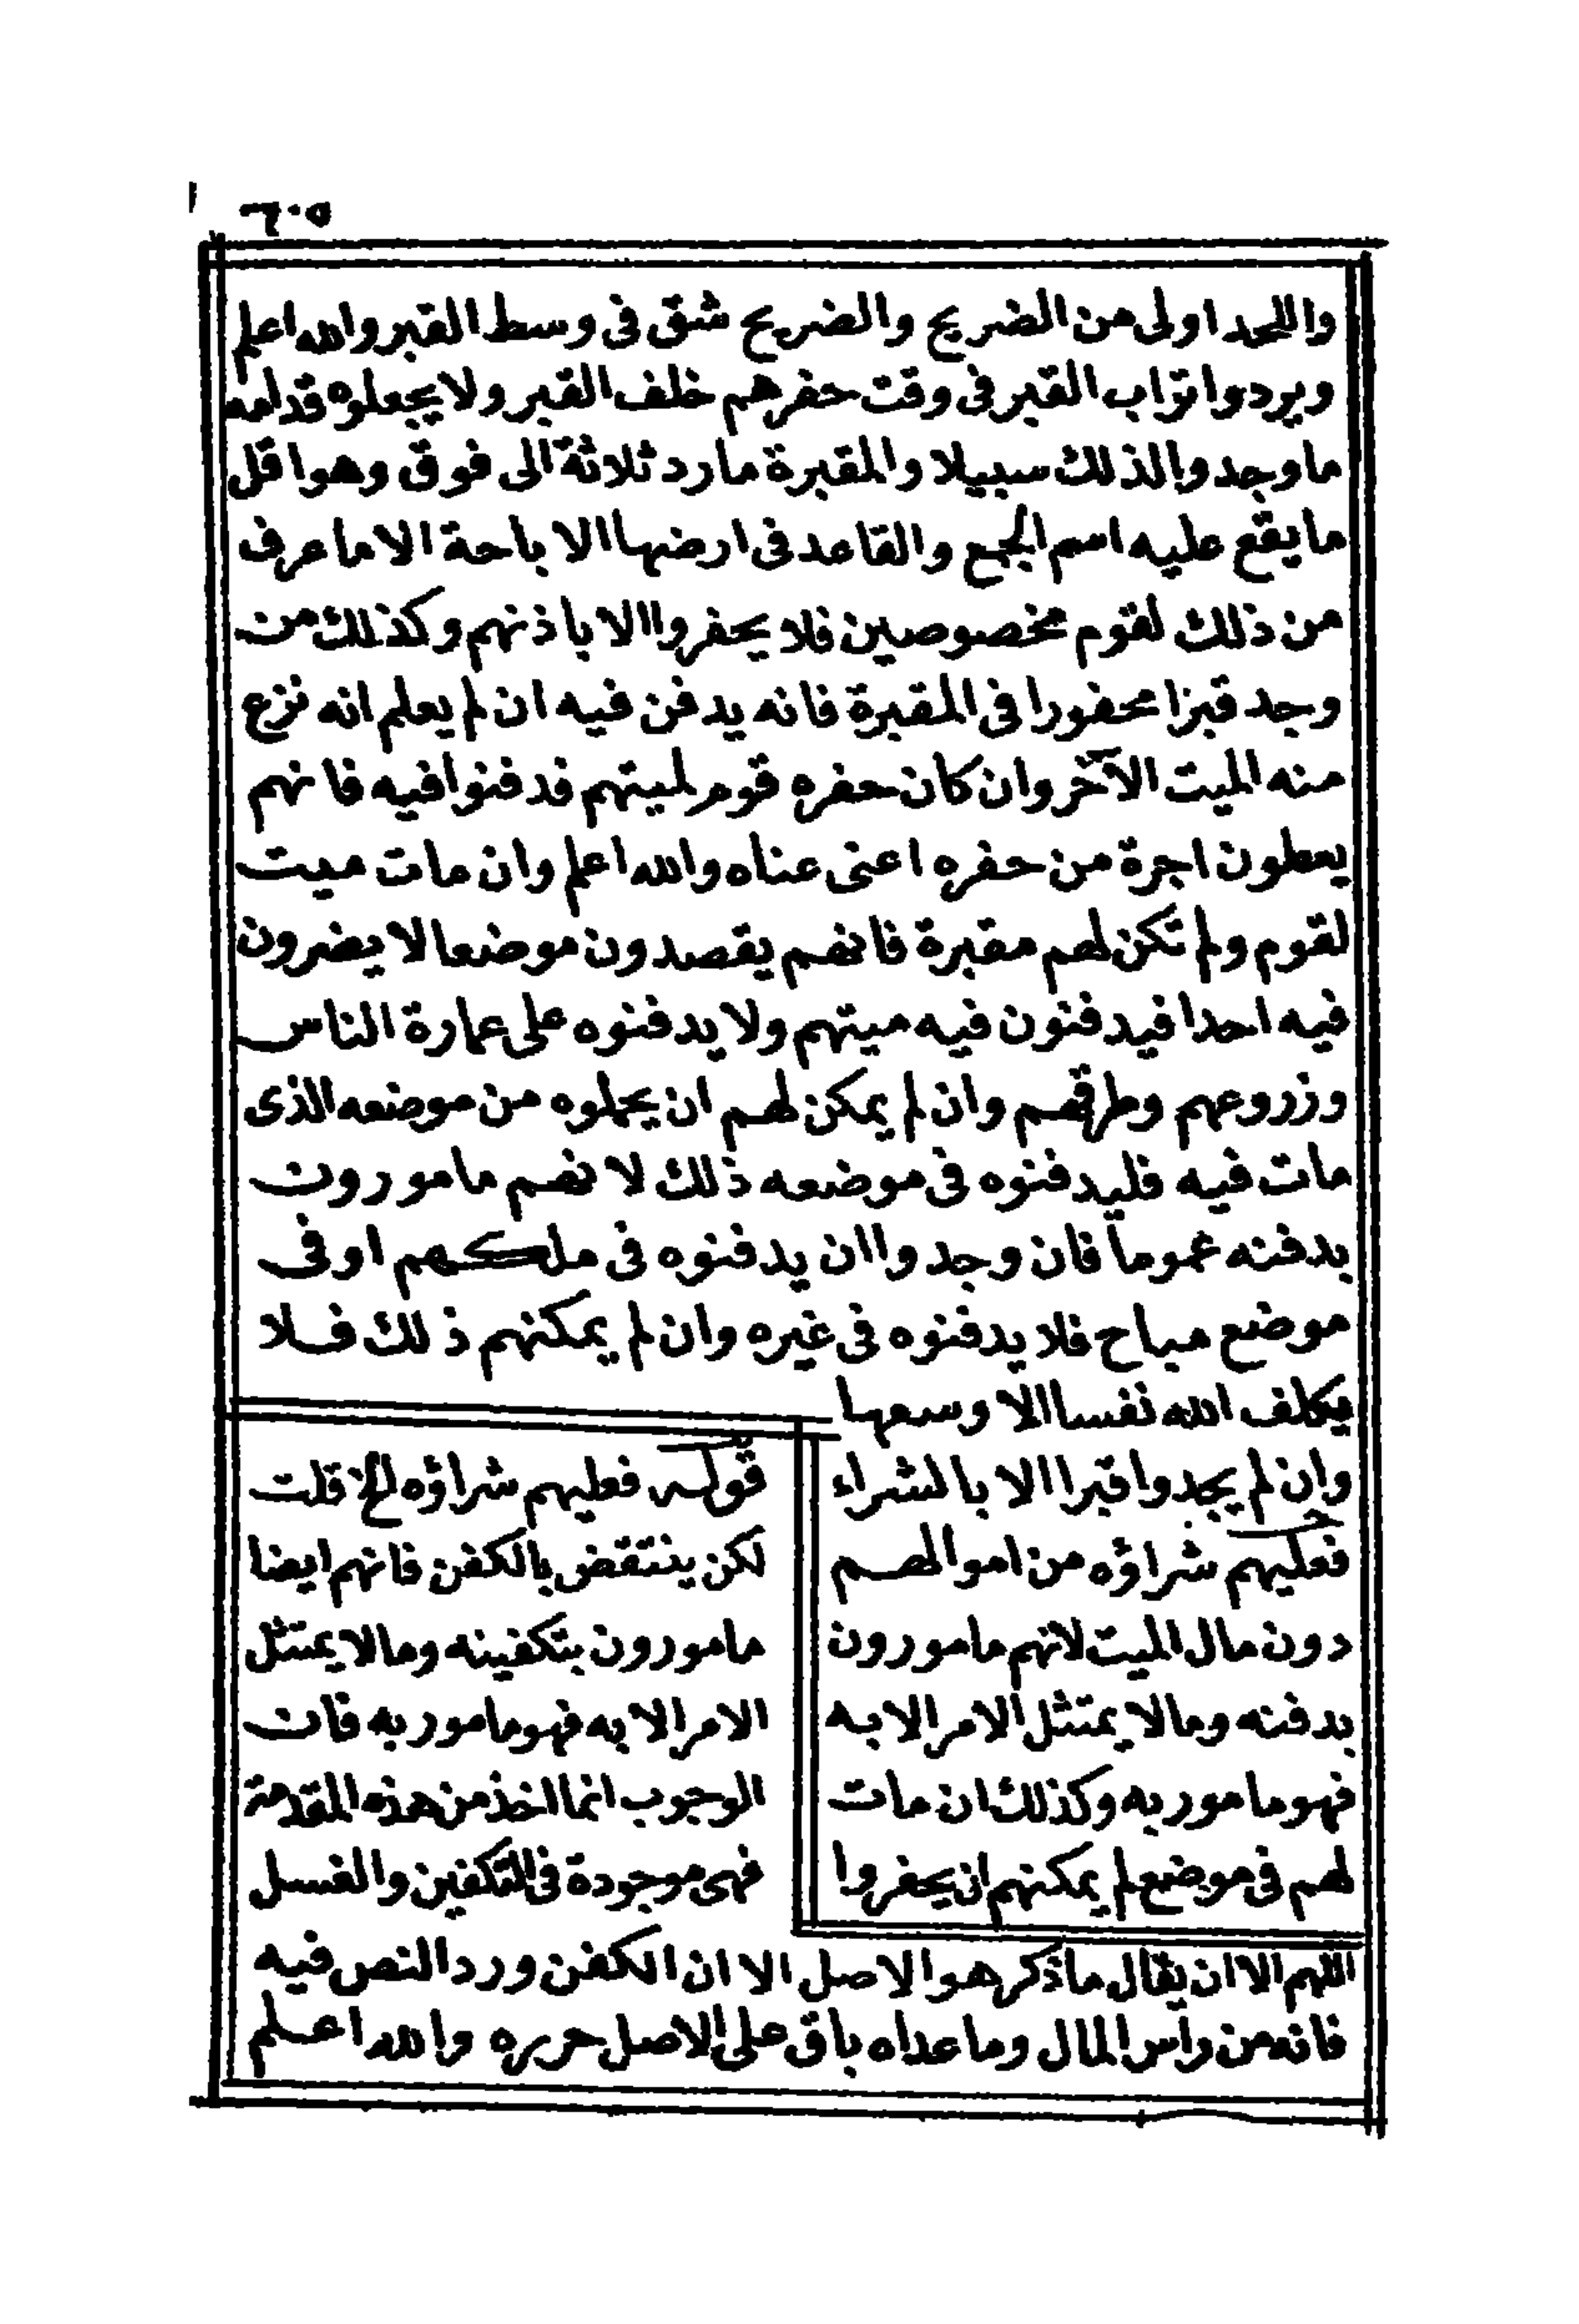 ٦٠٥
واللحد اولى من الضريح والضريح شق فى وسط القبر والله اعلم
ويردوا تراب القبر فى وقت حفرهم خلف القبر ولا يجعلوه قدامه
ما وجدوا لذلك سبيلا والمقبرة ما رد ثلاثة الى فوق وهو اقل
ما يقع عليه اسم الجمع والقاعد فى ارضها الاباحة الا ما عرف
من ذلك لقوم مخصوصين فلا يحفروا الا باذنهم وكذلك من
وجد قبرا محفورا فى المقبرة فانه يدفن فيه ان لم يعلم انه نزع
منه الميت الآخر وان كان حفره قوم لميتهم فدفنوا فيه فانهم
يعطون اجرة من حفره اعنى عناه والله اعلم وان مات ميت
لقوم ولم تكن لهم مقبرة فانهم يقصدون موضعا لا يضرون
فيه احدا فيدفنون فيه ميتهم ولا يدفنوه على عمارة الناس
وزروعهم وطرقهم وان لم يمكن لهم ان يحملوه من موضعه الذى
مات فيه فليدفنوه فى موضعه ذلك لانهم مامورون
بدفنه عموما فان وجدوا ان يدفنوه فى ملكهم او فى
موضع مباح فلا يدفنوه فى غيره وان لم يمكنهم ذلك فلا
يكلف الله نفسا الا وسعها
وان لم يجدوا قبرا الا بالشراء
فعليهم شراؤه من اموالهم
دون مال الميت لانهم مامورون
بدفنه وما لا يمتثل الامر الا به
فهو مامور به وكذلك ان مات
لهم فى موضع لم يمكنهم ان يحفروا
قوله فعليهم شراؤه الخ قلت
لكن ينتقض بالكفن فانهم ايضا
مامورون بتكفينه وما لا يمتثل
الامر الا به فهو مامور به فان
الوجوب انما اخذ من هذه المقدمة
فهى موجودة فى التكفين والغسل
اللهم الا ان يقال ما ذكر هو الاصل الا ان الكفن ورد النص فيه
فانه من رأس المال وما عداه باق على الاصل حرره والله اعلم